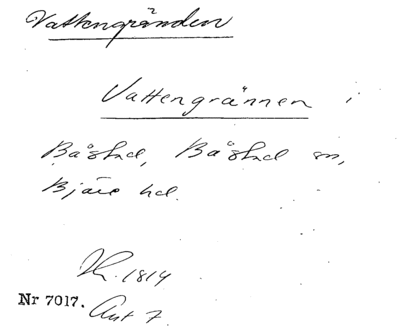 Vattengränden
Vattengrännen i
Båstad, Båstad sn,
Bjäre hd.
1814
Nr 7017. Akt 7